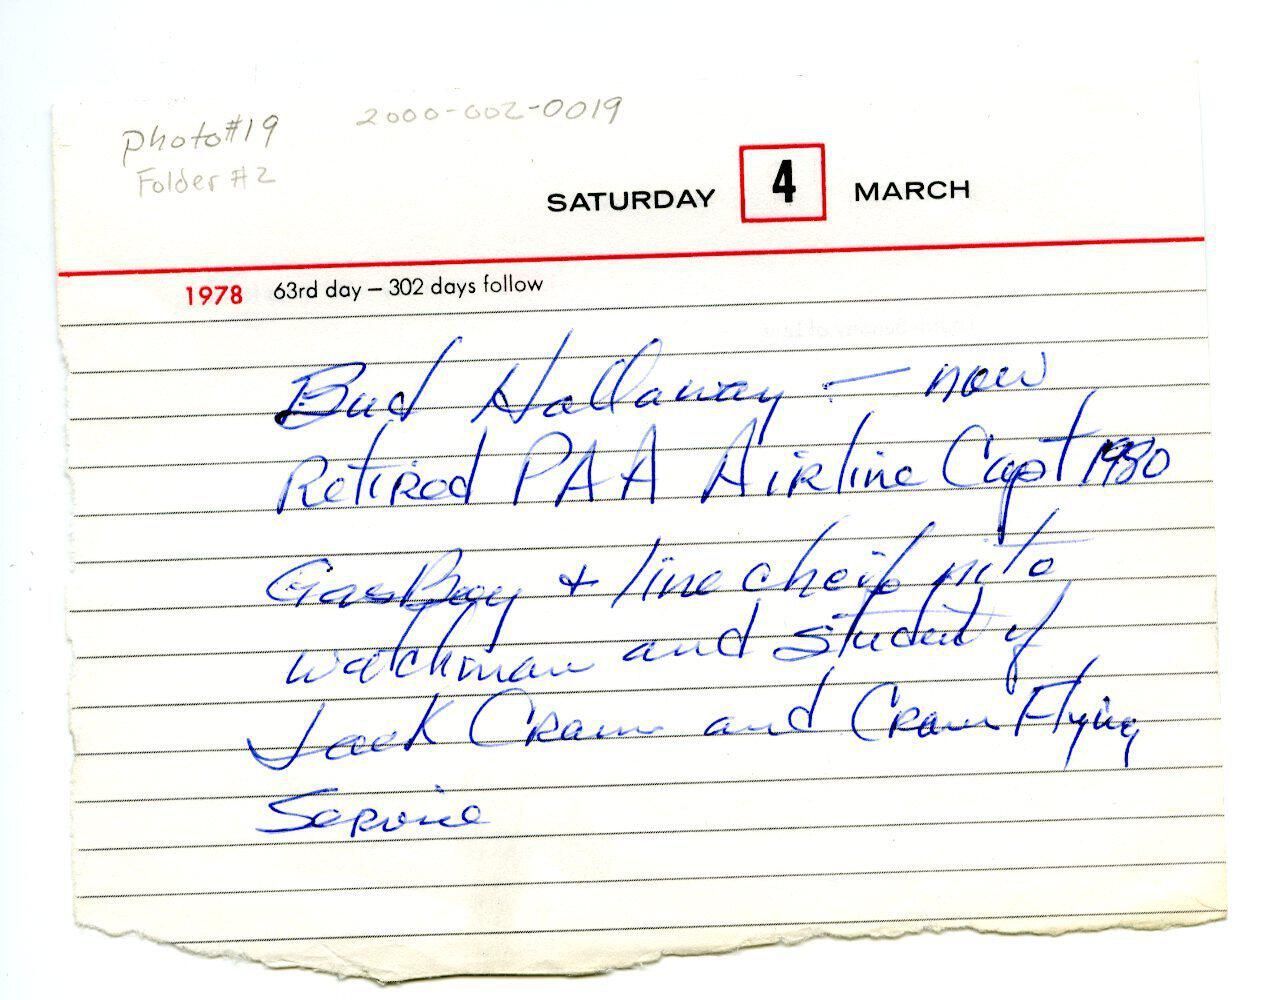 Photo #19
2000-002-0019
Folder #2
SATURDAY 4 MARCH
1978 63rd day – 302 days follow
Bud Hallaway — now
Retired PAA Airline Capt 1980
Gas Boy + line cheif nite
watchman and student of
Jack Cram and Cram Flying
Service